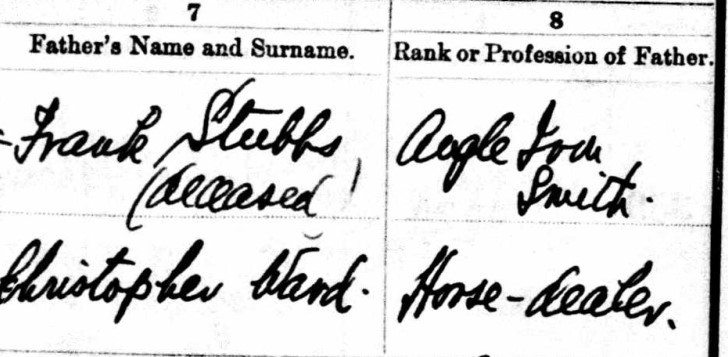 7
8
Father's Name and Surname.
Rank or Profession of Father.
Frank Stubbs
(deceased)
Angle Iron
Smith.
Christopher Ward.
Horse-dealer.